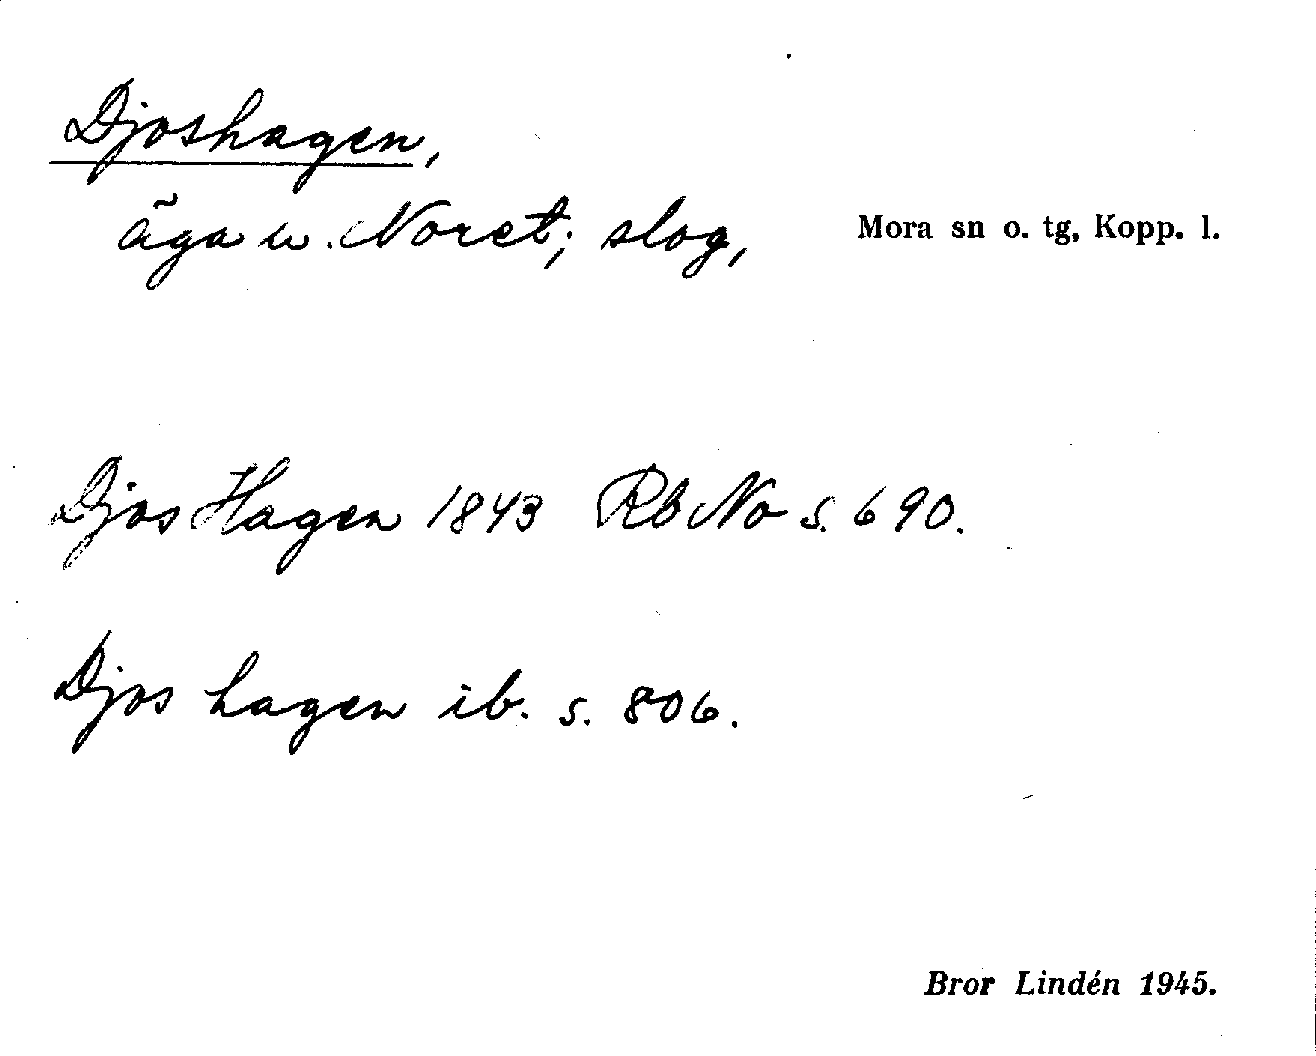 Djoshagen,
äga u. Noret; slog, Mora sn o. tg, Kopp. l.
Djos Hagen 1843 Rb No s. 690.
Djos hagen ib. s. 806.
Bror Lindén 1945.